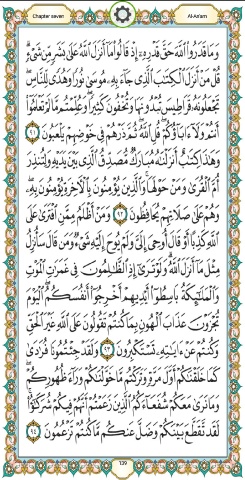 Chapter seven
Al-An'am
وَمَا قَدَرُوا۟ ٱللَّهَ حَقَّ قَدْرِهِۦٓ إِذْ قَالُوا۟ مَآ أَنزَلَ ٱللَّهُ عَلَىٰ بَشَرٍ مِّن شَىْءٍ ۗ
قُلْ مَنْ أَنزَلَ ٱلْكِتَٰبَ ٱلَّذِى جَآءَ بِهِۦ مُوسَىٰ نُورًا وَهُدًى لِّلنَّاسِ ۖ
تَجْعَلُونَهُۥ قَرَاطِيسَ تُبْدُونَهَا وَتُخْفُونَ كَثِيرًا ۖ وَعُلِّمْتُم مَّا لَمْ تَعْلَمُوٓا۟
أَنتُمْ وَلَآ ءَابَآؤُكُمْ ۖ قُلِ ٱللَّهُ ۖ ثُمَّ ذَرْهُمْ فِى خَوْضِهِمْ يَلْعَبُونَ ٩١
وَهَٰذَا كِتَٰبٌ أَنزَلْنَٰهُ مُبَارَكٌ مُّصَدِّقُ ٱلَّذِى بَيْنَ يَدَيْهِ وَلِتُنذِرَ
أُمَّ ٱلْقُرَىٰ وَمَنْ حَوْلَهَا ۚ وَٱلَّذِينَ يُؤْمِنُونَ بِٱلْءَاخِرَةِ يُؤْمِنُونَ بِهِۦ ۖ
وَهُمْ عَلَىٰ صَلَاتِهِمْ يُحَافِظُونَ ٩٢ وَمَنْ أَظْلَمُ مِمَّنِ ٱفْتَرَىٰ عَلَى
ٱللَّهِ كَذِبًا أَوْ قَالَ أُوحِىَ إِلَىَّ وَلَمْ يُوحَ إِلَيْهِ شَىْءٌ وَمَن قَالَ سَأُنزِلُ
مِثْلَ مَآ أَنزَلَ ٱللَّهُ ۗ وَلَوْ تَرَىٰٓ إِذِ ٱلظَّٰلِمُونَ فِى غَمَرَٰتِ ٱلْمَوْتِ
وَٱلْمَلَٰٓئِكَةُ بَاسِطُوٓا۟ أَيْدِيهِمْ أَخْرِجُوٓا۟ أَنفُسَكُمُ ۖ ٱلْيَوْمَ
تُجْزَوْنَ عَذَابَ ٱلْهُونِ بِمَا كُنتُمْ تَقُولُونَ عَلَى ٱللَّهِ غَيْرَ ٱلْحَقِّ
وَكُنتُمْ عَنْ ءَايَٰتِهِۦ تَسْتَكْبِرُونَ ٩٣ وَلَقَدْ جِئْتُمُونَا فُرَٰدَىٰ
كَمَا خَلَقْنَٰكُمْ أَوَّلَ مَرَّةٍ وَتَرَكْتُم مَّا خَوَّلْنَٰكُمْ وَرَآءَ ظُهُورِكُمْ ۖ
وَمَا نَرَىٰ مَعَكُمْ شُفَعَآءَكُمُ ٱلَّذِينَ زَعَمْتُمْ أَنَّهُمْ فِيكُمْ شُرَكَٰٓؤُا۟ ۚ
لَقَد تَّقَطَّعَ بَيْنَكُمْ وَضَلَّ عَنكُم مَّا كُنتُمْ تَزْعُمُونَ ٩٤
139